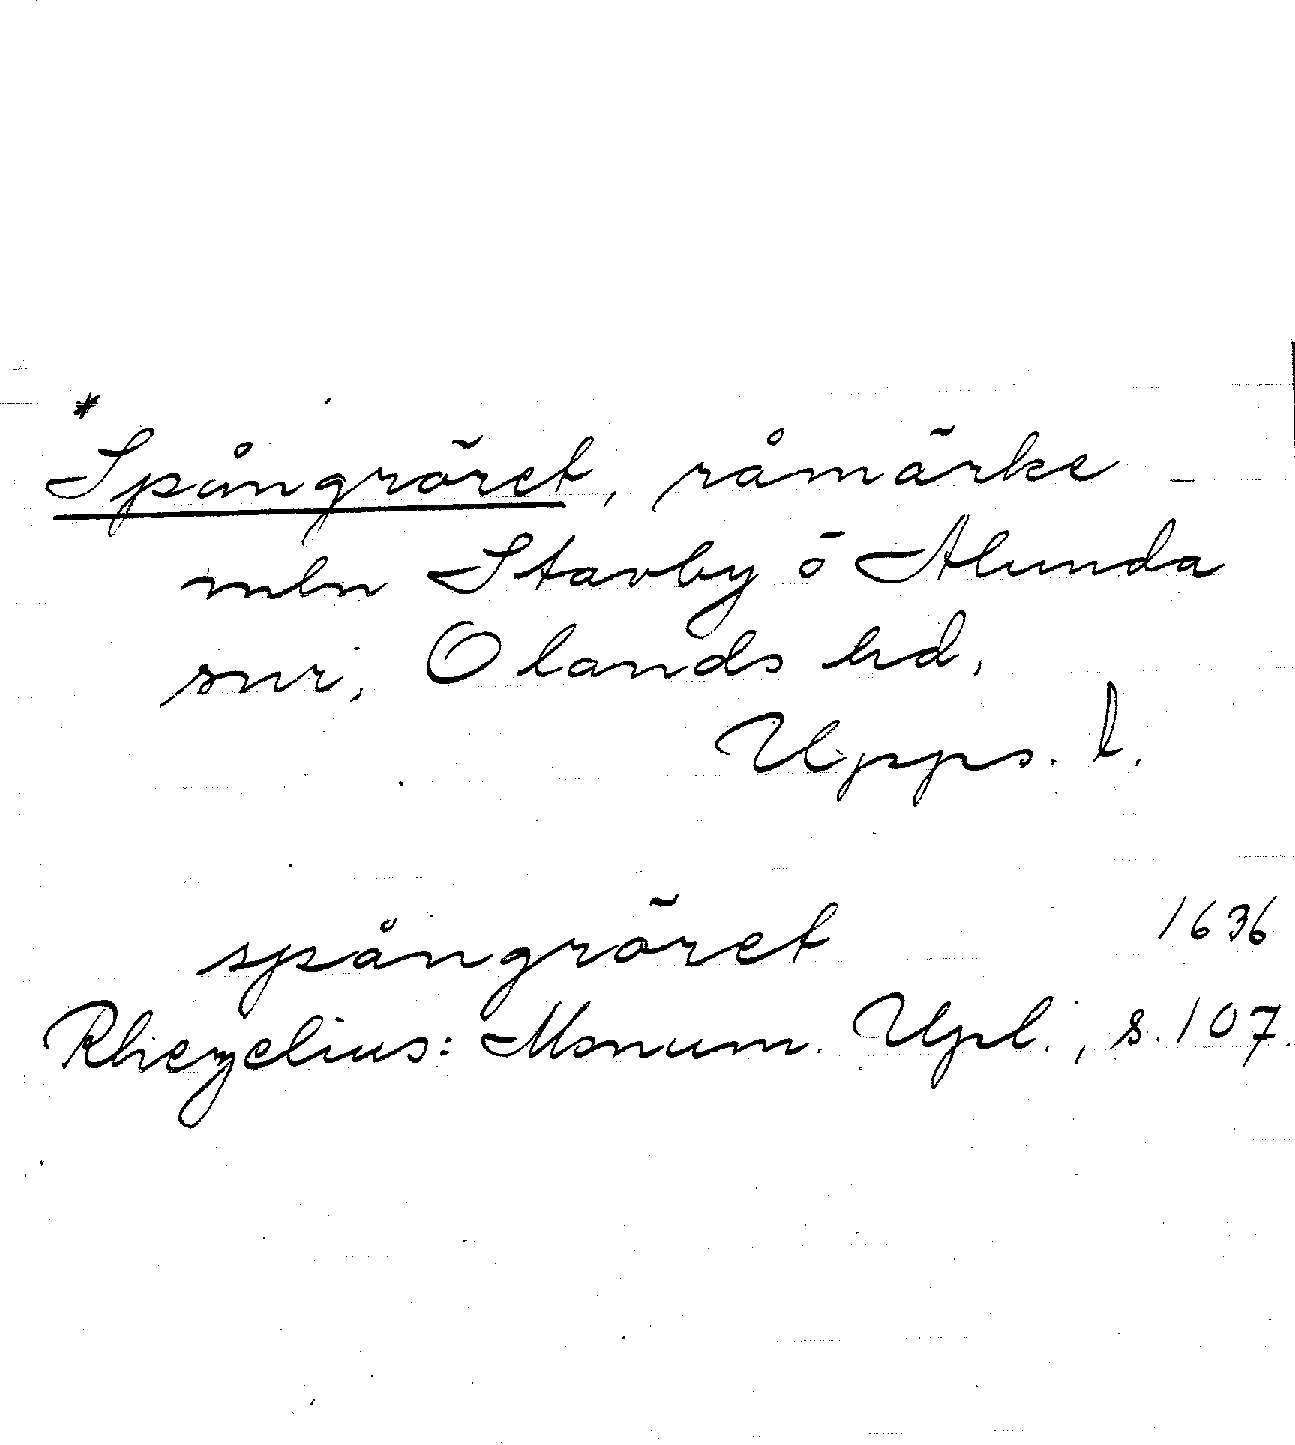 *
Spångröret, råmärke
mln Stavby ö Alunda
snr, Olands hd,
Upps. l.
spångröret 1636
Rhezelius: Monum. Upl., s. 107.